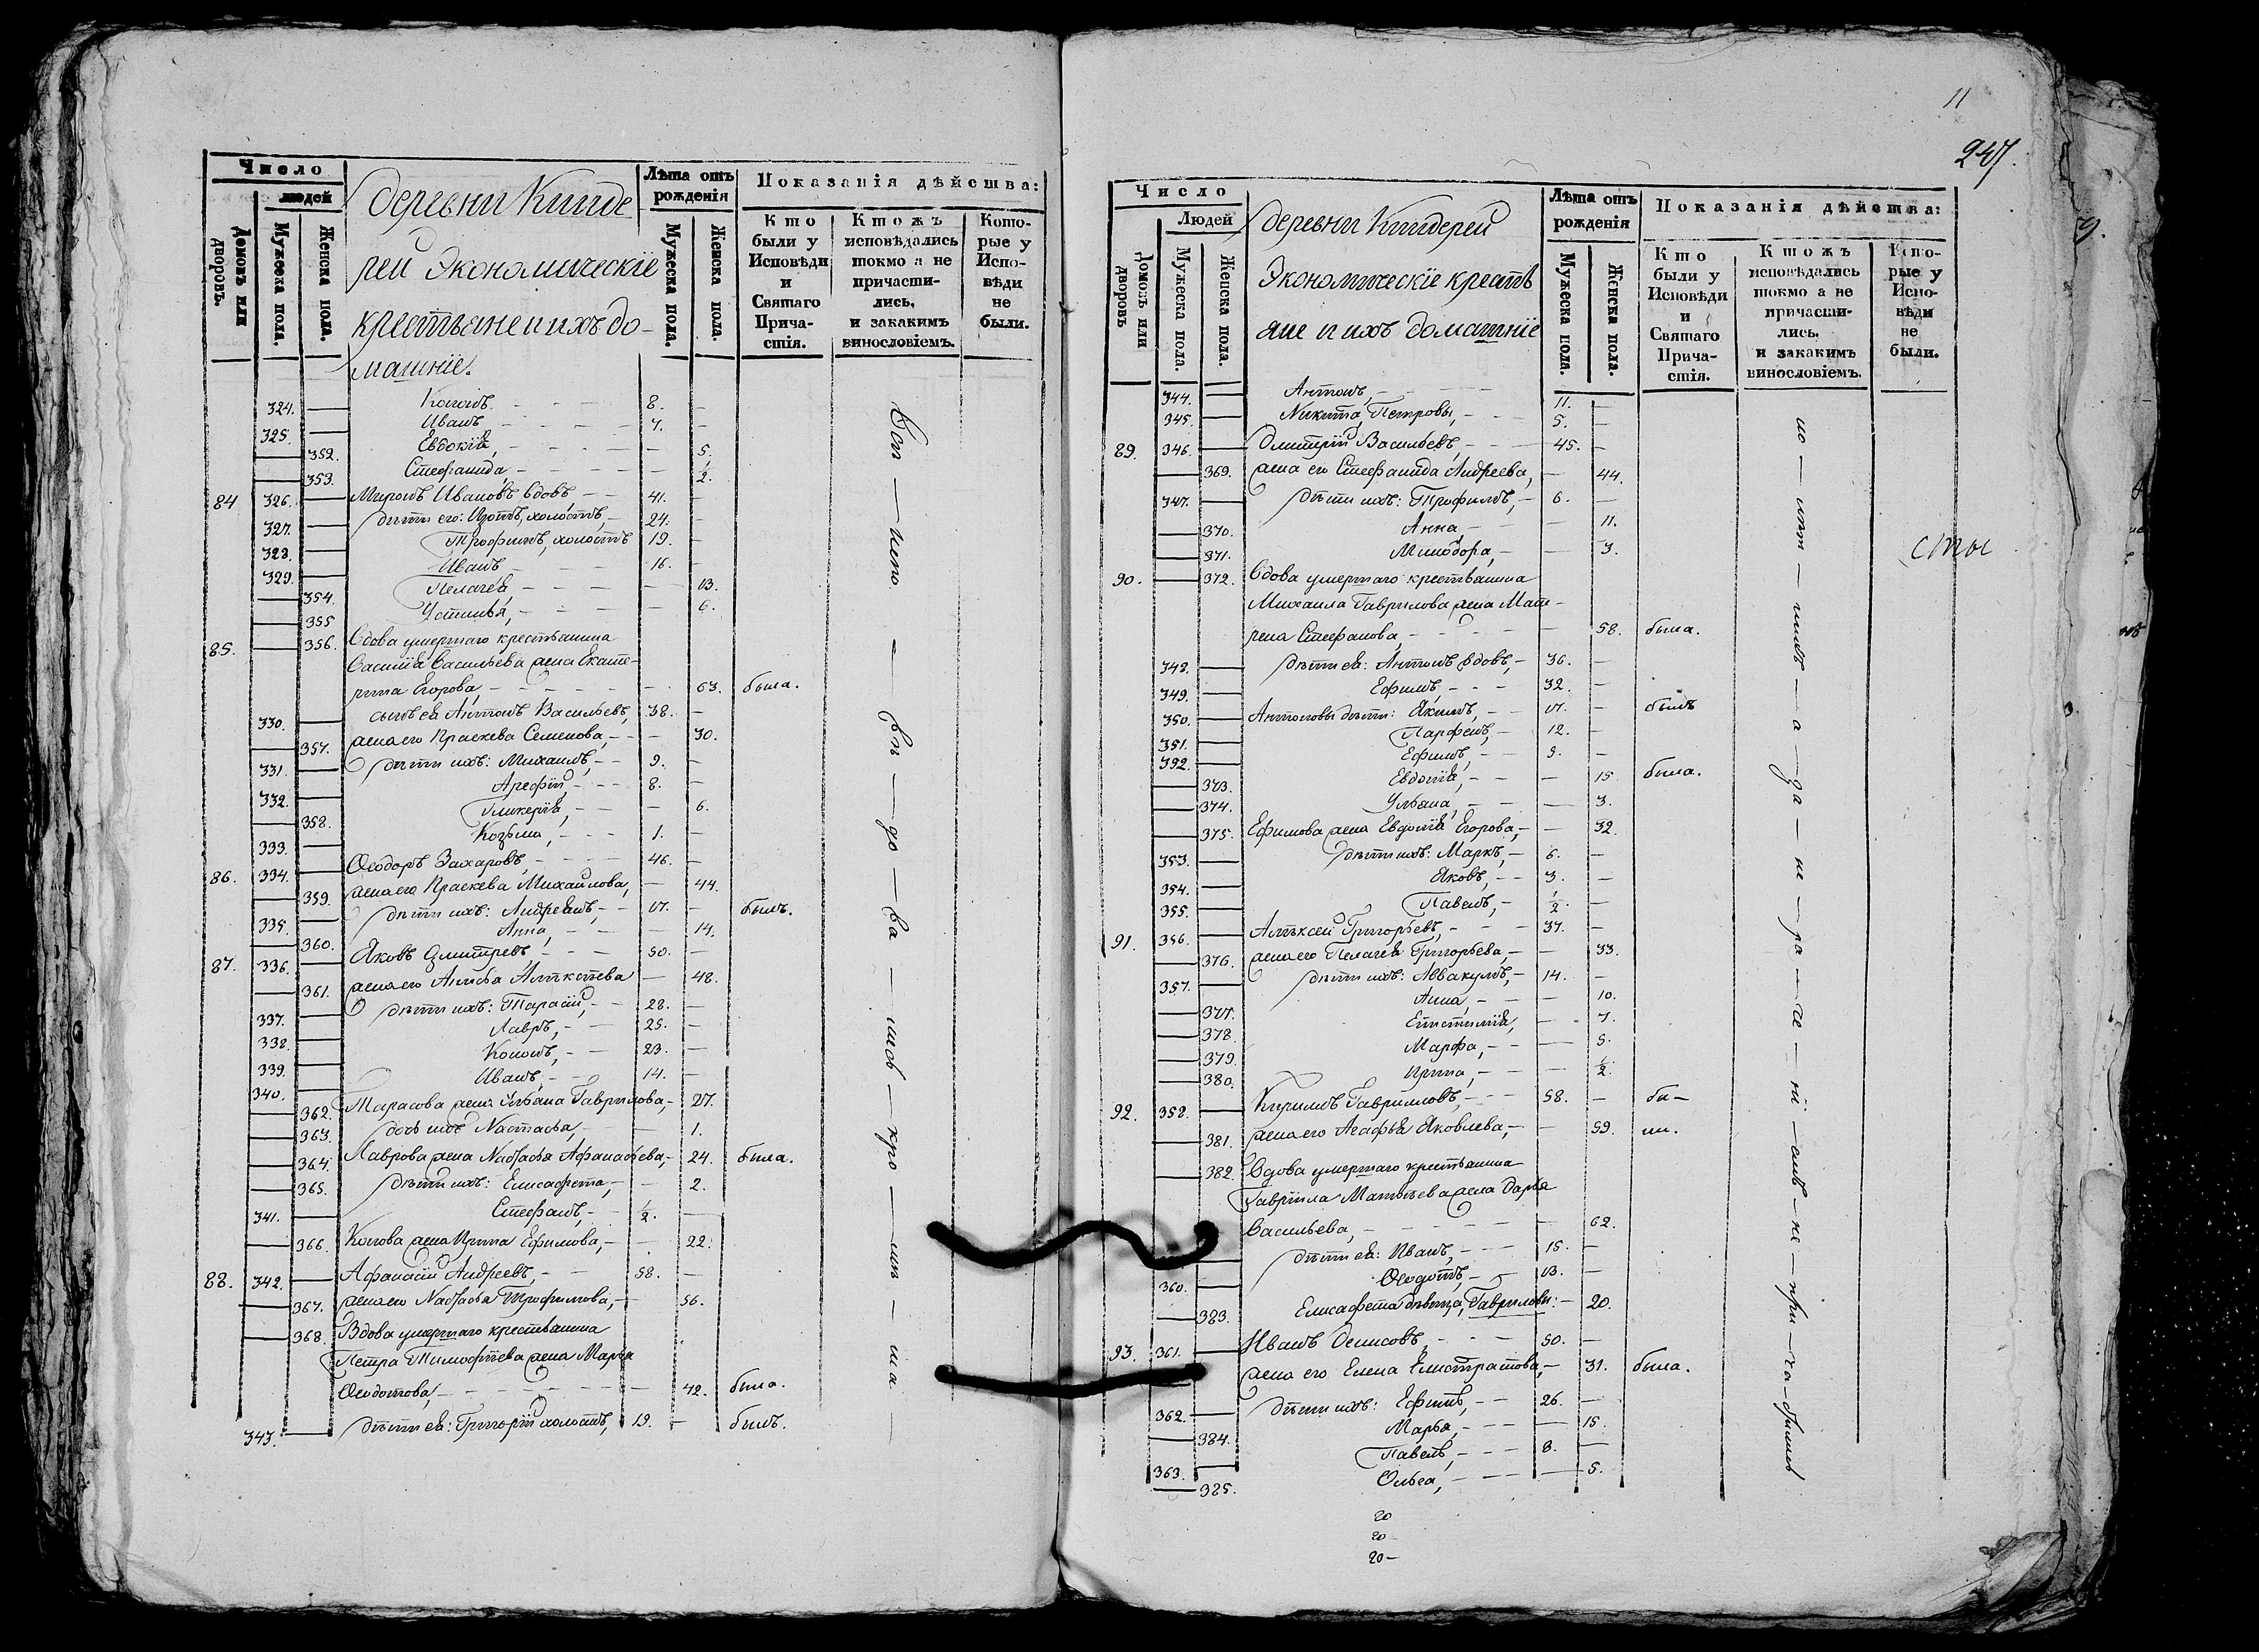 Число
людей
Домовъ или дворовъ.
Мужеска пола.
Женска пола.
деревни Кинде
рей Экономическіе
крестьяне и ихъ до-
машніе.
Лѣта отъ рожденія
Мужеска пола.
Женска пола.
Показанія дѣйства:
Кто были у Исповѣди и Святаго Причастія.
Кто жъ исповѣдались токмо а не причастились, и закакимъ винословіемъ.
Которые у Исповѣди не были.
324. — Кононъ. 8. —
325. — Иванъ 7. —
— 352. Евдокія, — 5.
— 353. Стефанида — 1/2.
84 326. — Миронъ Ивановъ вдовъ 41. —
327. — дѣти его: Изотъ, холостъ, 24. —
328. — Трофимъ, холостъ 19. —
329. — Иванъ 16. —
— 354. Пелагея, — 13.
— 355 Устинья, — 6.
85. — 356. Вдова умершаго крестьянина
Василія Васильева жена Екате-
рина Егорова, — 63. была.
330. — сынъ ея Антонъ Васильевъ, 38. —
— 357. жена его Праскева Семенова, — 30.
331. — дѣти ихъ: Михаилъ, 9. —
332. — Арефій, 8. —
— 358. Гликерія, — 6.
333. — Козьма, 1. —
86. 334. — Ѳеодоръ Захаровъ, 46. —
— 359. жена его Праскева Михайлова, — 44.
335. — дѣти ихъ: Андреянъ, 17. — былъ.
— 360. Анна, — 14.
87. 336. — Яковъ Дмитревъ, 50. —
— 361. жена его Анисья Алѣксѣева — 48.
337. — дѣти ихъ: Тарасій, 28. —
338. — Лавръ, 25. —
339. — Кононъ, 23. —
340. — Иванъ, 14. —
— 362. Тарасова жена Ульяна Гаврилова, 27.
— 363. дочь ихъ Настасья, — 1.
— 364. Лаврова жена Настасья Афанасьева, 24. была.
— 365. дѣти ихъ: Елисафета, — 2.
341. — Стефанъ, 1/2. —
— 366. Конова жена Ирина Ефимова, — 22.
88. 342. — Афанасій Андреевъ, 58. —
— 367. жена его Настасья Трофимова, — 56.
— 368. Вдова умершаго крестьянина
Петра Тимофѣева жена Марья
Ѳеодотова, — 42. была.
343. — дѣти ея: Григорій холостъ, 19. — былъ.
11
247.
Число
Людей
Домовъ или дворовъ
Мужеска пола.
Женска пола.
деревни Киндерей
Экономическіе крестья
яне и ихъ домашніе
Лѣта отъ рожденія
Мужеска пола.
Женска пола.
Показанія дѣйства:
Кто были у Исповѣди и Святаго Причастія.
Кто жъ исповѣдались токмо а не причастились, и закакимъ винословіемъ.
Которые у Исповѣди не были.
344. — Антонъ, 11. —
345. — Никита, Петровы, 5. —
89. 346. — Дмитрій Васильевъ, 45. —
— 369. жена его Стефанида Андреева, — 44.
347. — дѣти ихъ: Трофимъ, 6. —
— 370. Анна, — 11.
— 371. Минодора, — 3.
90. — 372. Вдова умершаго крестьянина
Михаила Гаврилова жена Мат-
рена Стефанова, — 58. была.
342. — дѣти ея: Антонъ вдовъ, 36. —
349. — Ефимъ, 32. —
350. — Антоновы дѣти: Якимъ, 17. — былъ
351. — Парфенъ, 12. —
392. — Ефимъ, 9. —
— 373. Евдокія, — 15 была.
— 374. Ульяна, — 3.
— 375. Ефимова жена Евдокія Егорова, — 32.
353. — дѣти ихъ: Маркъ, 6. —
354. — Яковъ, 3. —
355. — Павелъ, 1/2. —
91. 356. — Алѣксей Григорьевъ, 37. —
— 376. жена его Пелагея Григорьева, — 33.
357. — дѣти ихъ: Аввакумъ, 14. —
— 377. Анна, — 10.
— 378. Епистимія, — 7.
— 379. Марфа, — 5.
— 380. Ирина, — 1/2.
92. 358. — Кирилъ Гавриловъ, 58. — бы-
— 381. жена его Агафья Яковлева, — 59. ли.
— 382. Вдова умершаго крестьянина
Гавріила Матвѣева жена Дарья
Васильева, — 62.
дѣти ея: Иванъ, 15. —
360. — Ѳеодотъ, 13. —
— 383. Елисафета дѣвица, Гавриловы: 20.
93. 361. — Иванъ Денисовъ, 50. —
жена его Елена Елистратова, — 31. была.
362. — дѣти ихъ: Ефимъ, 26. —
— 384. Марья, — 15.
363. — Павелъ, 8. —
— 385. Ольга, — 5.
сты
20
20
20-